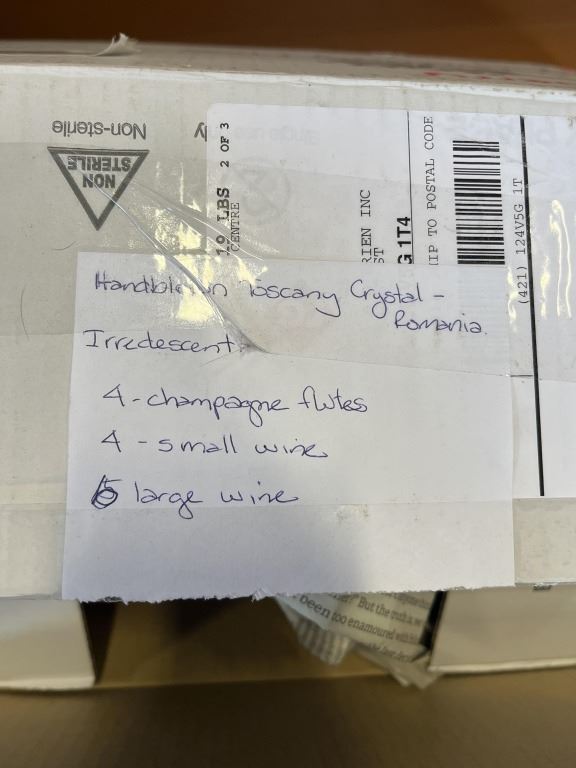 Non-sterile
NON
STERILE
19 LBS 2 OF 3
CENTRE
RIEN INC
ST
G 1T4
IP TO POSTAL CODE
(421) 124V5G 1T
Handblown Toscany Crystal -
Romania.
Irredescent
4 - champagne flutes
4 - small wine
large wine
But the truth is we
been too enamoured with